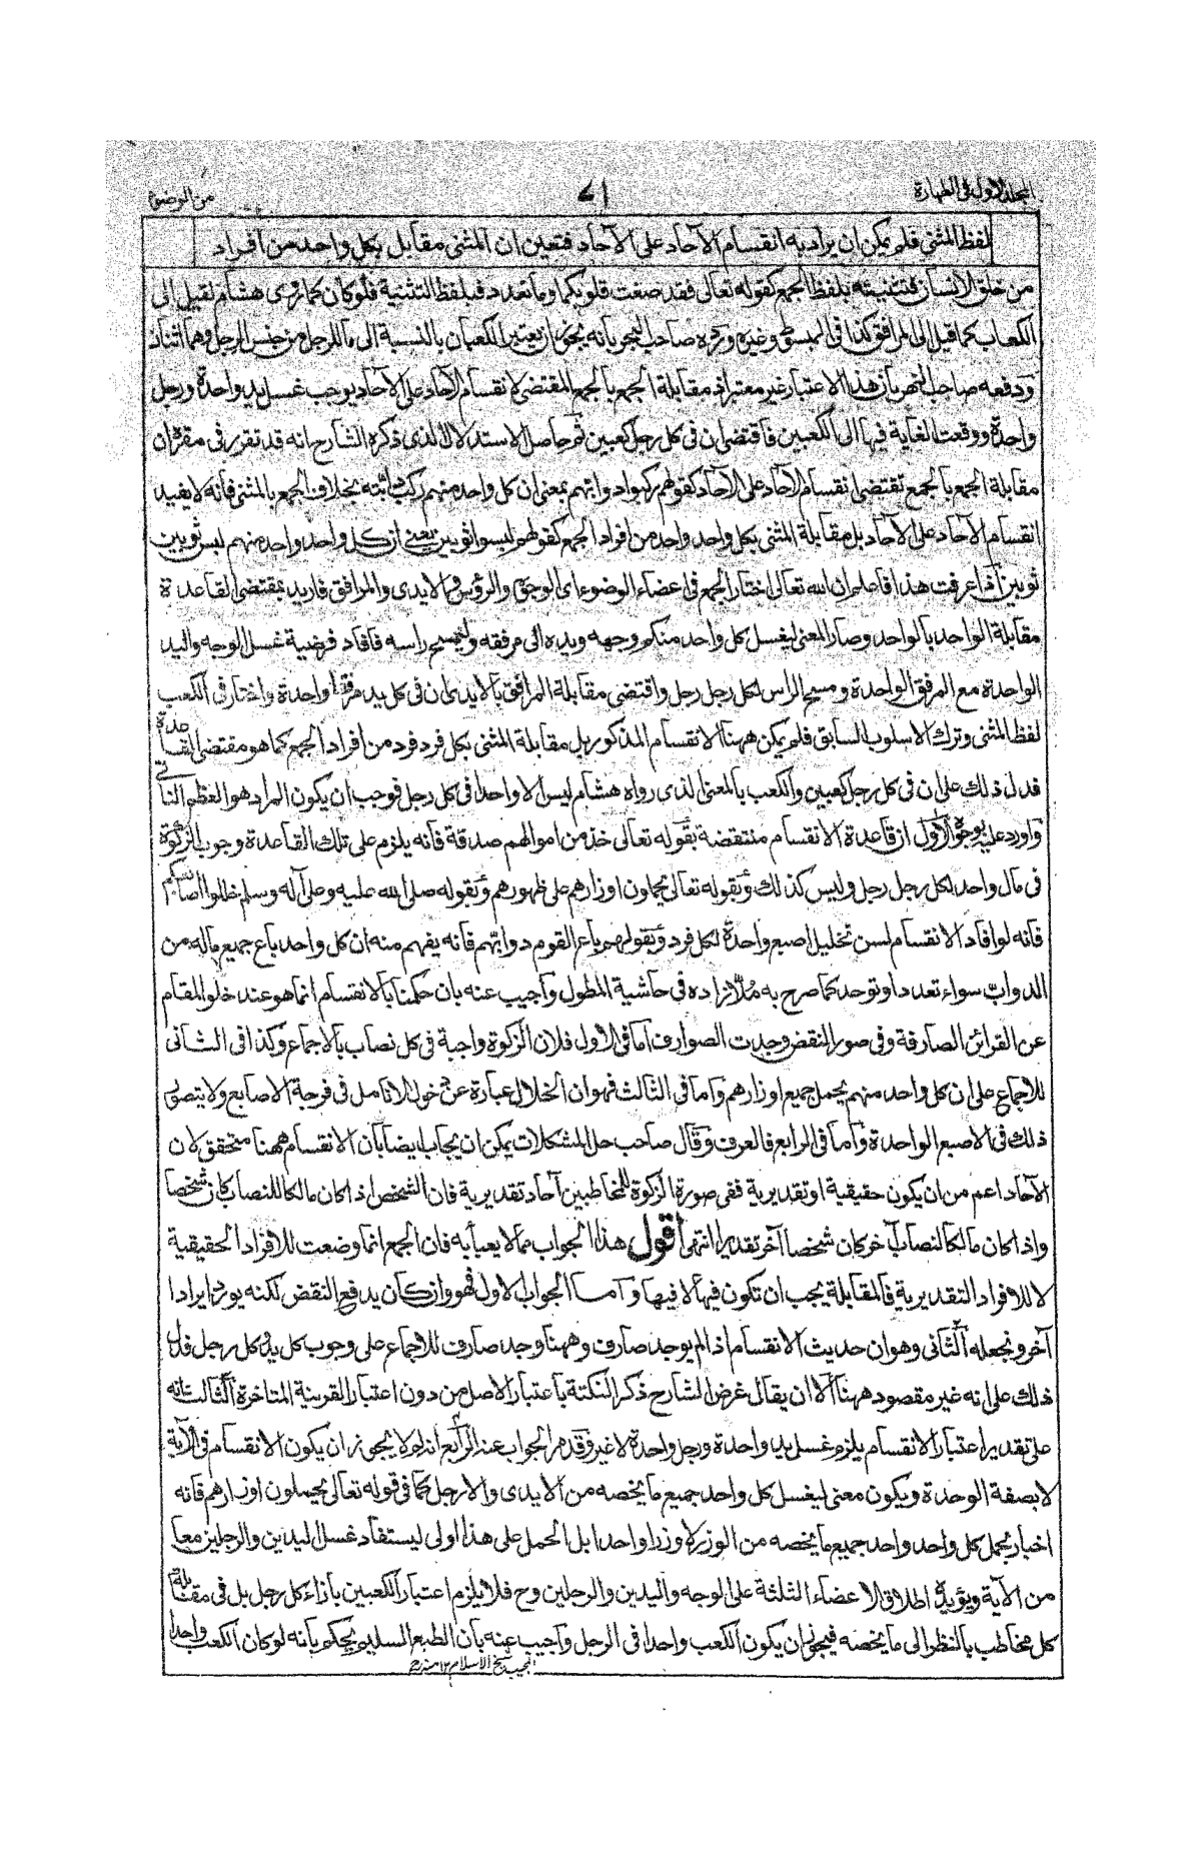 المجلد الاول فى الطهارة
٧١
من الوضوء
لفظ المثنى فلم يمكن ان يراد به انقسام الآحاد على الآحاد فتعين ان المثنى مقابل بكل واحد من افراد
من خلق الانسان فتثنيته بلفظ الجمع كقوله تعالى فقد صغت قلوبكما وما تعدد فبلفظ التثنية فلو كان كما روى هشام لقيل الى
الكعاب كما قيل الى المرافق كذا فى المبسوط وغيره ورده صاحب البحر بانه يجوز ان يعتبر الكعبان بالنسبة الى ما للرجل من جنس الرجل وهما اثنان
ودفعه صاحب النهر بان هذا الاعتبار غير معتبر اذ مقابلة الجمع بالجمع المقتضى لانقسام الآحاد على الآحاد يوجب غسل يد واحدة ورجل
واحدة ووقعت الغاية فيها الى الكعبين فاقتضى ان فى كل رجل كعبين ثم حاصل الاستدلال الذى ذكره الشارح انه قد تقرر فى مقره ان
مقابلة الجمع بالجمع تقتضى انقسام الآحاد على الآحاد كقولهم ركبوا دوابهم بمعنى ان كل واحد منهم ركب دابته بخلاف الجمع بالمثنى فانه لا يفيد
انقسام الآحاد على الآحاد بل مقابلة المثنى بكل واحد واحد من افراد الجمع كقولهم لبسوا ثوبين يعنى ان كل واحد واحد منهم لبس ثوبين
ثوبين اذا عرفت هذا فاعلم ان الله تعالى اختار الجمع فى اعضاء الوضوء اى الوجوه والرؤس والايدى والمرافق فاريد بمقتضى القاعدة
مقابلة الواحد بالواحد وصار المعنى ليغسل كل واحد منكم وجهه ويده الى مرفقه وليمسح راسه فافاد فرضية غسل الوجه واليد
الواحدة مع المرفق الواحدة ومسح الراس لكل رجل رجل واقتضى مقابلة المرافق بالايدى ان فى كل يد مرفقا واحدة واختار فى الكعب
لفظ المثنى وترك الاسلوب السابق فلم يمكن ههنا الانقسام المذكور بل مقابلة المثنى بكل فرد فرد من افراد الجمع كما هو مقتضى القاعدة
فدل ذلك على ان فى كل رجل كعبين والكعب بالمعنى الذى رواه هشام ليس الا واحدا فى كل رجل فوجب ان يكون المراد هو العظم الناتى
واورد عليه بوجوه الاول ان قاعدة الانقسام منتقضة بقوله تعالى خذ من اموالهم صدقة فانه يلزم على تلك القاعدة وجوب الزكوة
فى مال واحد لكل رجل رجل وليس كذلك وبقوله تعالى يحملون اوزارهم على ظهورهم وبقوله صلى الله عليه وعلى آله وسلم خللوا اصابعكم
فانه لو افاد الانقسام لسن تخليل اصبع واحدة لكل فرد وبقولهم باع القوم دوابهم فانه يفهم منه ان كل واحد باع جميع ماله من
الدواب سواء تعدد او توحد كما صرح به ملا زاده فى حاشية المطول واجيب عنه بان حكمنا بالانقسام انما هو عند خلو المقام
عن القرائن الصارفة وفى صور النقض وجدت الصوارف اما فى الاول فلان الزكوة واجبة فى كل نصاب بالاجماع وكذا فى الثانى
للاجماع على ان كل واحد منهم يحمل جميع اوزارهم واما فى الثالث فهو ان الخلال عبارة عن دخول الانامل فى فرجة الاصابع ولا يتصور
ذلك فى الاصبع الواحدة واما فى الرابع فالعرف وقال صاحب حل المشكلات يمكن ان يجاب ايضا بان الانقسام ههنا متحقق لان
الآحاد اعم من ان يكون حقيقية او تقديرية ففى صورة الزكوة للمخاطبين آحاد تقديرية فان الشخص اذا كان مالكا للنصاب كان شخصا
واذا كان مالكا لنصاب آخر كان شخصا آخر تقديرا انتهى اقول هذا الجواب مما لا يعبأ به فان الجمع انما وضعت للافراد الحقيقية
لا للافراد التقديرية فالمقابلة يجب ان تكون فيها لا فيها واما الجواب الاول فهو وان كان يدفع النقض لكنه يورد ايرادا
آخر ونجعله الثانى وهو ان حديث الانقسام اذا لم يوجد صارف وههنا وجد صارف للاجماع على وجوب كل يد وكل رجل فدل
ذلك على انه غير مقصود ههنا الا ان يقال غرض الشارح ذكر النكتة باعتبار الاصل من دون اعتبار القرينة المتاخرة الثالث انه
على تقدير اعتبار الانقسام يلزم غسل يد واحدة ورجل واحدة لا غير وقد مر الجواب عنه الرابع انه لم لا يجوز ان يكون الانقسام فى الآية
لا بصفة الوحدة ويكون معنى ليغسل كل واحد جميع ما يخصه من الايدى والارجل كما فى قوله تعالى يحملون اوزارهم فانه
اخبار بحمل كل واحد واحد جميع ما يخصه من الوزر لا وزرا واحدا بل الحمل على هذا اولى ليستفاد غسل اليدين والرجلين معا
من الآية ويؤيده اطلاق الاعضاء الثلثة على الوجه واليدين والرجلين وح فلا يلزم اعتبار الكعبين بازاء كل رجل بل فى مقابلة
كل مخاطب بالنظر الى ما يخصه فيجوز ان يكون الكعب واحدا فى الرجل واجيب عنه بان الطبع السليم يحكم بانه لو كان الكعب واحدا
المجيب شيخ الاسلام ١٢ منه رح